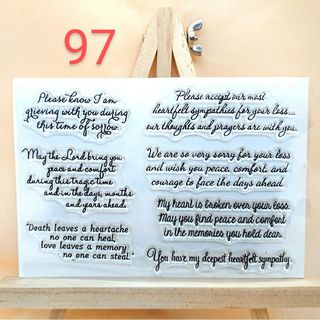 97
Please know I am
grieving with you during
this time of sorrow.
May the Lord bring you
peace and comfort
during this tragic time
and in the days, months
and years ahead.
"Death leaves a heartache
no one can heal,
love leaves a memory
no one can steal."
Please accept our most
heartfelt sympathies for your loss...
our thoughts and prayers are with you.
We are so very sorry for your loss
and wish you peace, comfort, and
courage to face the days ahead.
My heart is broken over your loss.
May you find peace and comfort
in the memories you hold dear.
You have my deepest heartfelt sympathy.